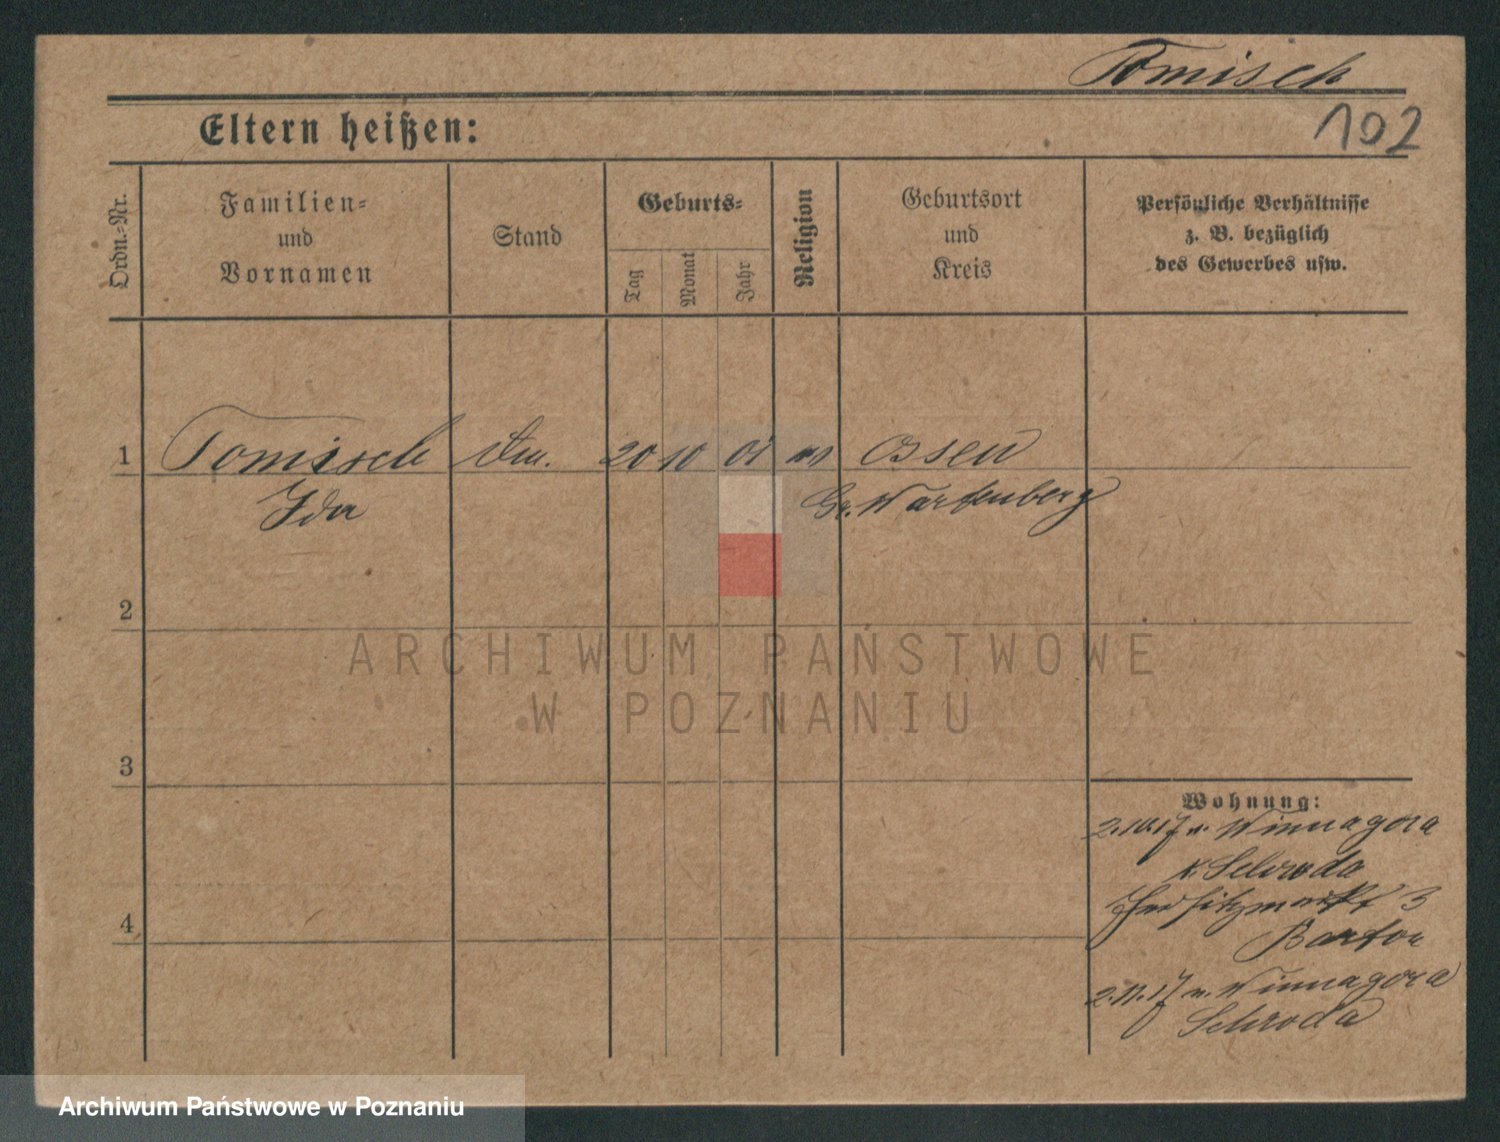 Tomisch
102
Eltern heißen:
Ordn.-Nr.
Familien-
und
Vornamen
Stand
Geburts-
Tag
Monat
Jahr
Religion
Geburtsort
und
Kreis
Persönliche Verhältnisse
z. B. bezüglich
des Gewerbes usw.
1 Tomisch 20 10 01 Ossen
Ida Gr. Wartenberg
2
ARCHIWUM PAŃSTWOWE
W POZNANIU
3
Wohnung:
2.10.17 n. Winnagora
k. Schroda
3
4
Bartor
2.11.17 n. Winnagora
Schroda
Archiwum Państwowe w Poznaniu